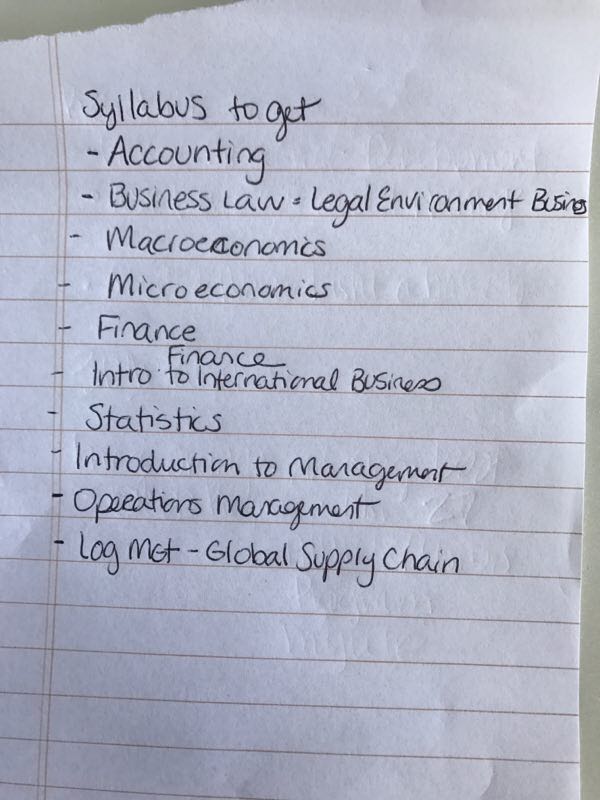 Syllabus to get
- Accounting
- Business Law = Legal Environment Busines
- Macroeconomics
- Microeconomics
- Finance
Finance
- Intro to International Business
- Statistics
- Introduction to Management
- Operations Management
- Log MGt - Global Supply Chain